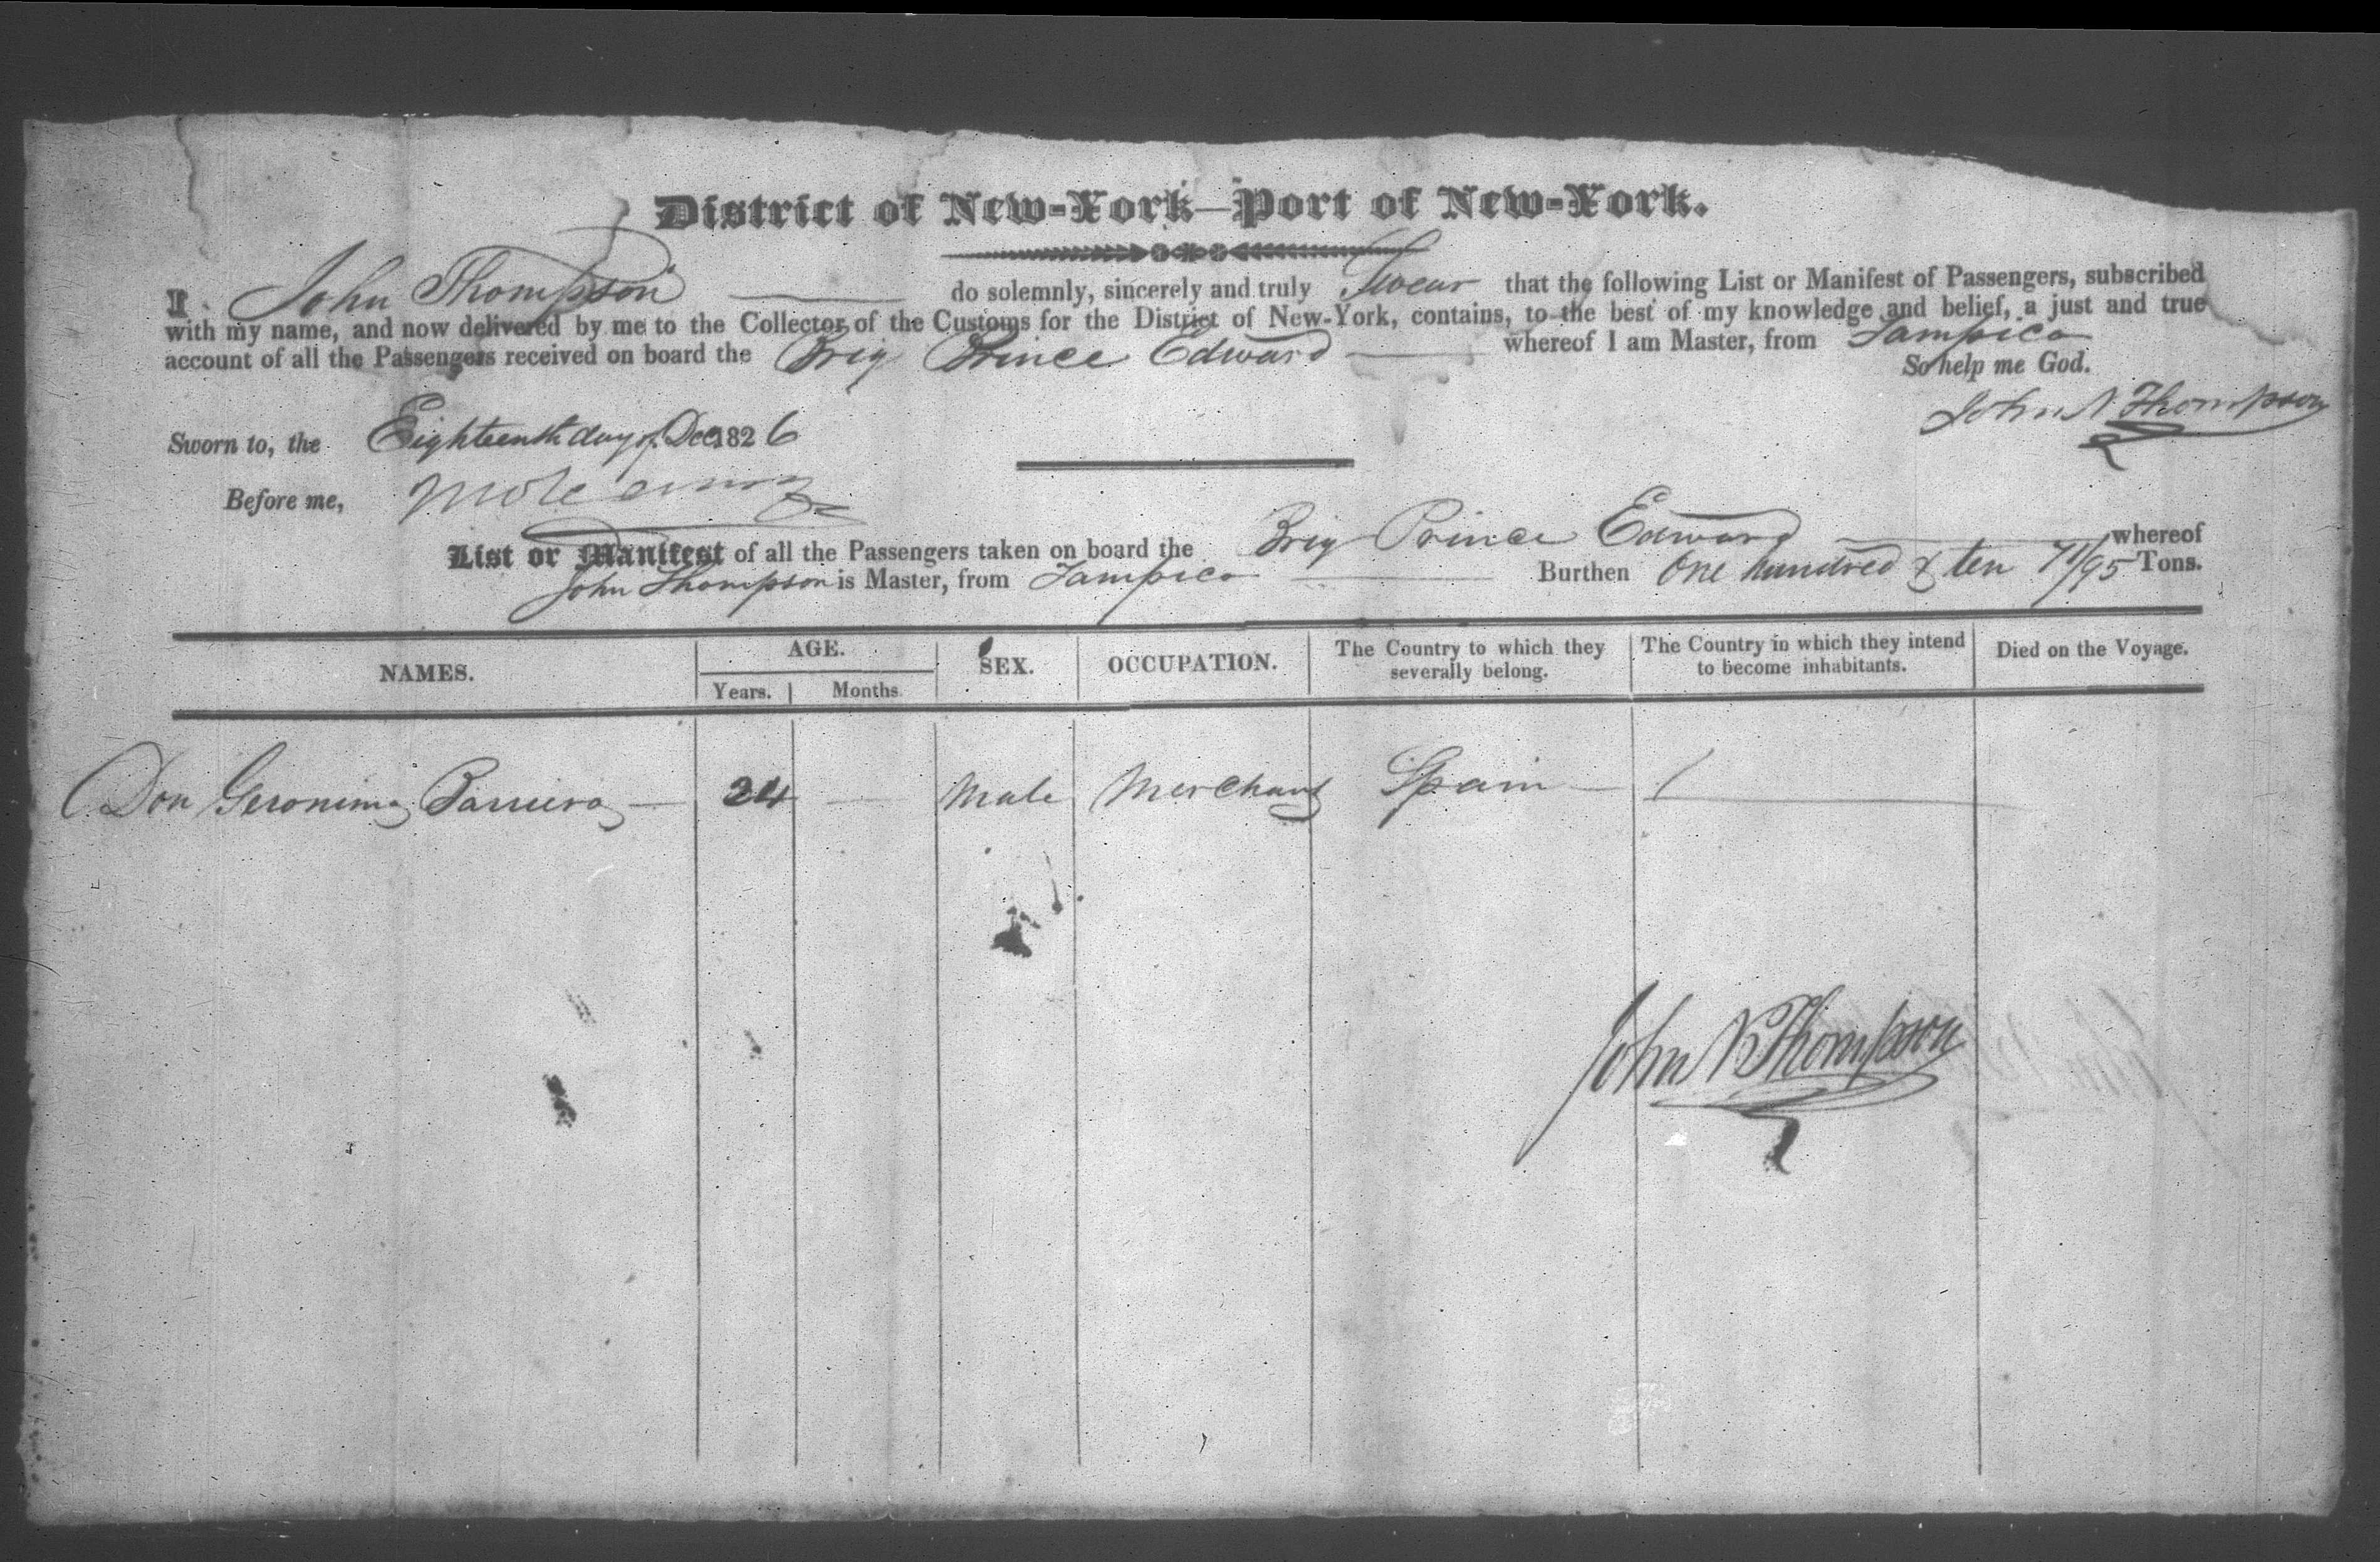 District of New-York—Port of New-York.
I John Thompson do solemnly, sincerely and truly Swear that the following List or Manifest of Passengers, subscribed
with my name, and now delivered by me to the Collector of the Customs for the District of New-York, contains, to the best of my knowledge and belief, a just and true
account of all the Passengers received on board the Brig Prince Edward whereof I am Master, from Tampico
So help me God.
John N Thompson
Sworn to, the Eighteenth day of Dec 1826
Before me,
List or Manifest of all the Passengers taken on board the Brig Prince Edward whereof
John Thompson is Master, from Tampico Burthen One hundred & ten 71/95 Tons.
NAMES. AGE. Years. Months. SEX. OCCUPATION. The Country to which they severally belong. The Country in which they intend to become inhabitants. Died on the Voyage.
Don Geronimo Barriera 24 Male Merchant Spain
John N Thompson